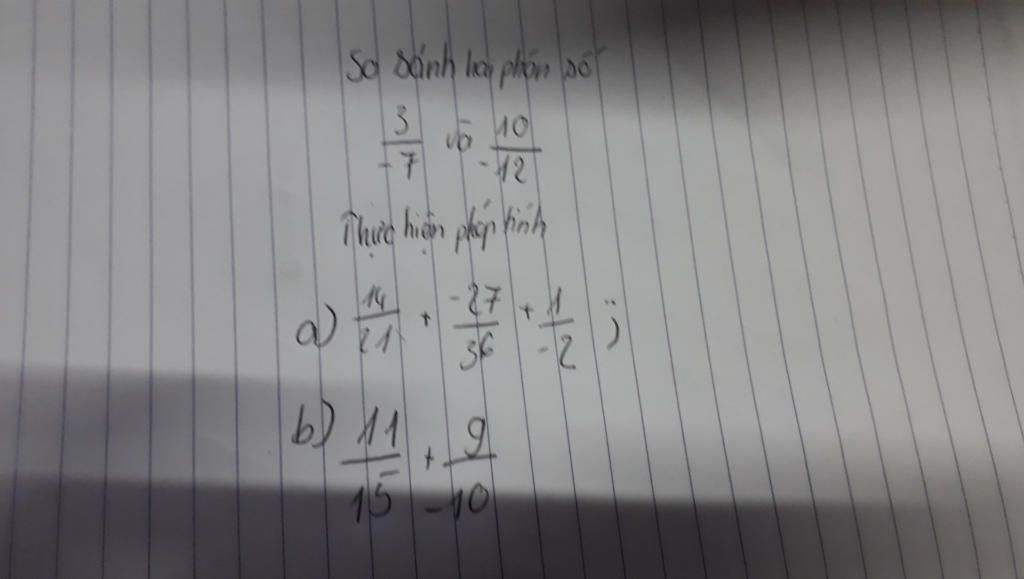 So sánh hai phân số
3/-7 và 10/-12
Thực hiện phép tính
a) 14/21 + -27/36 + 1/-2 ;
b) 11/15 + 9/-10